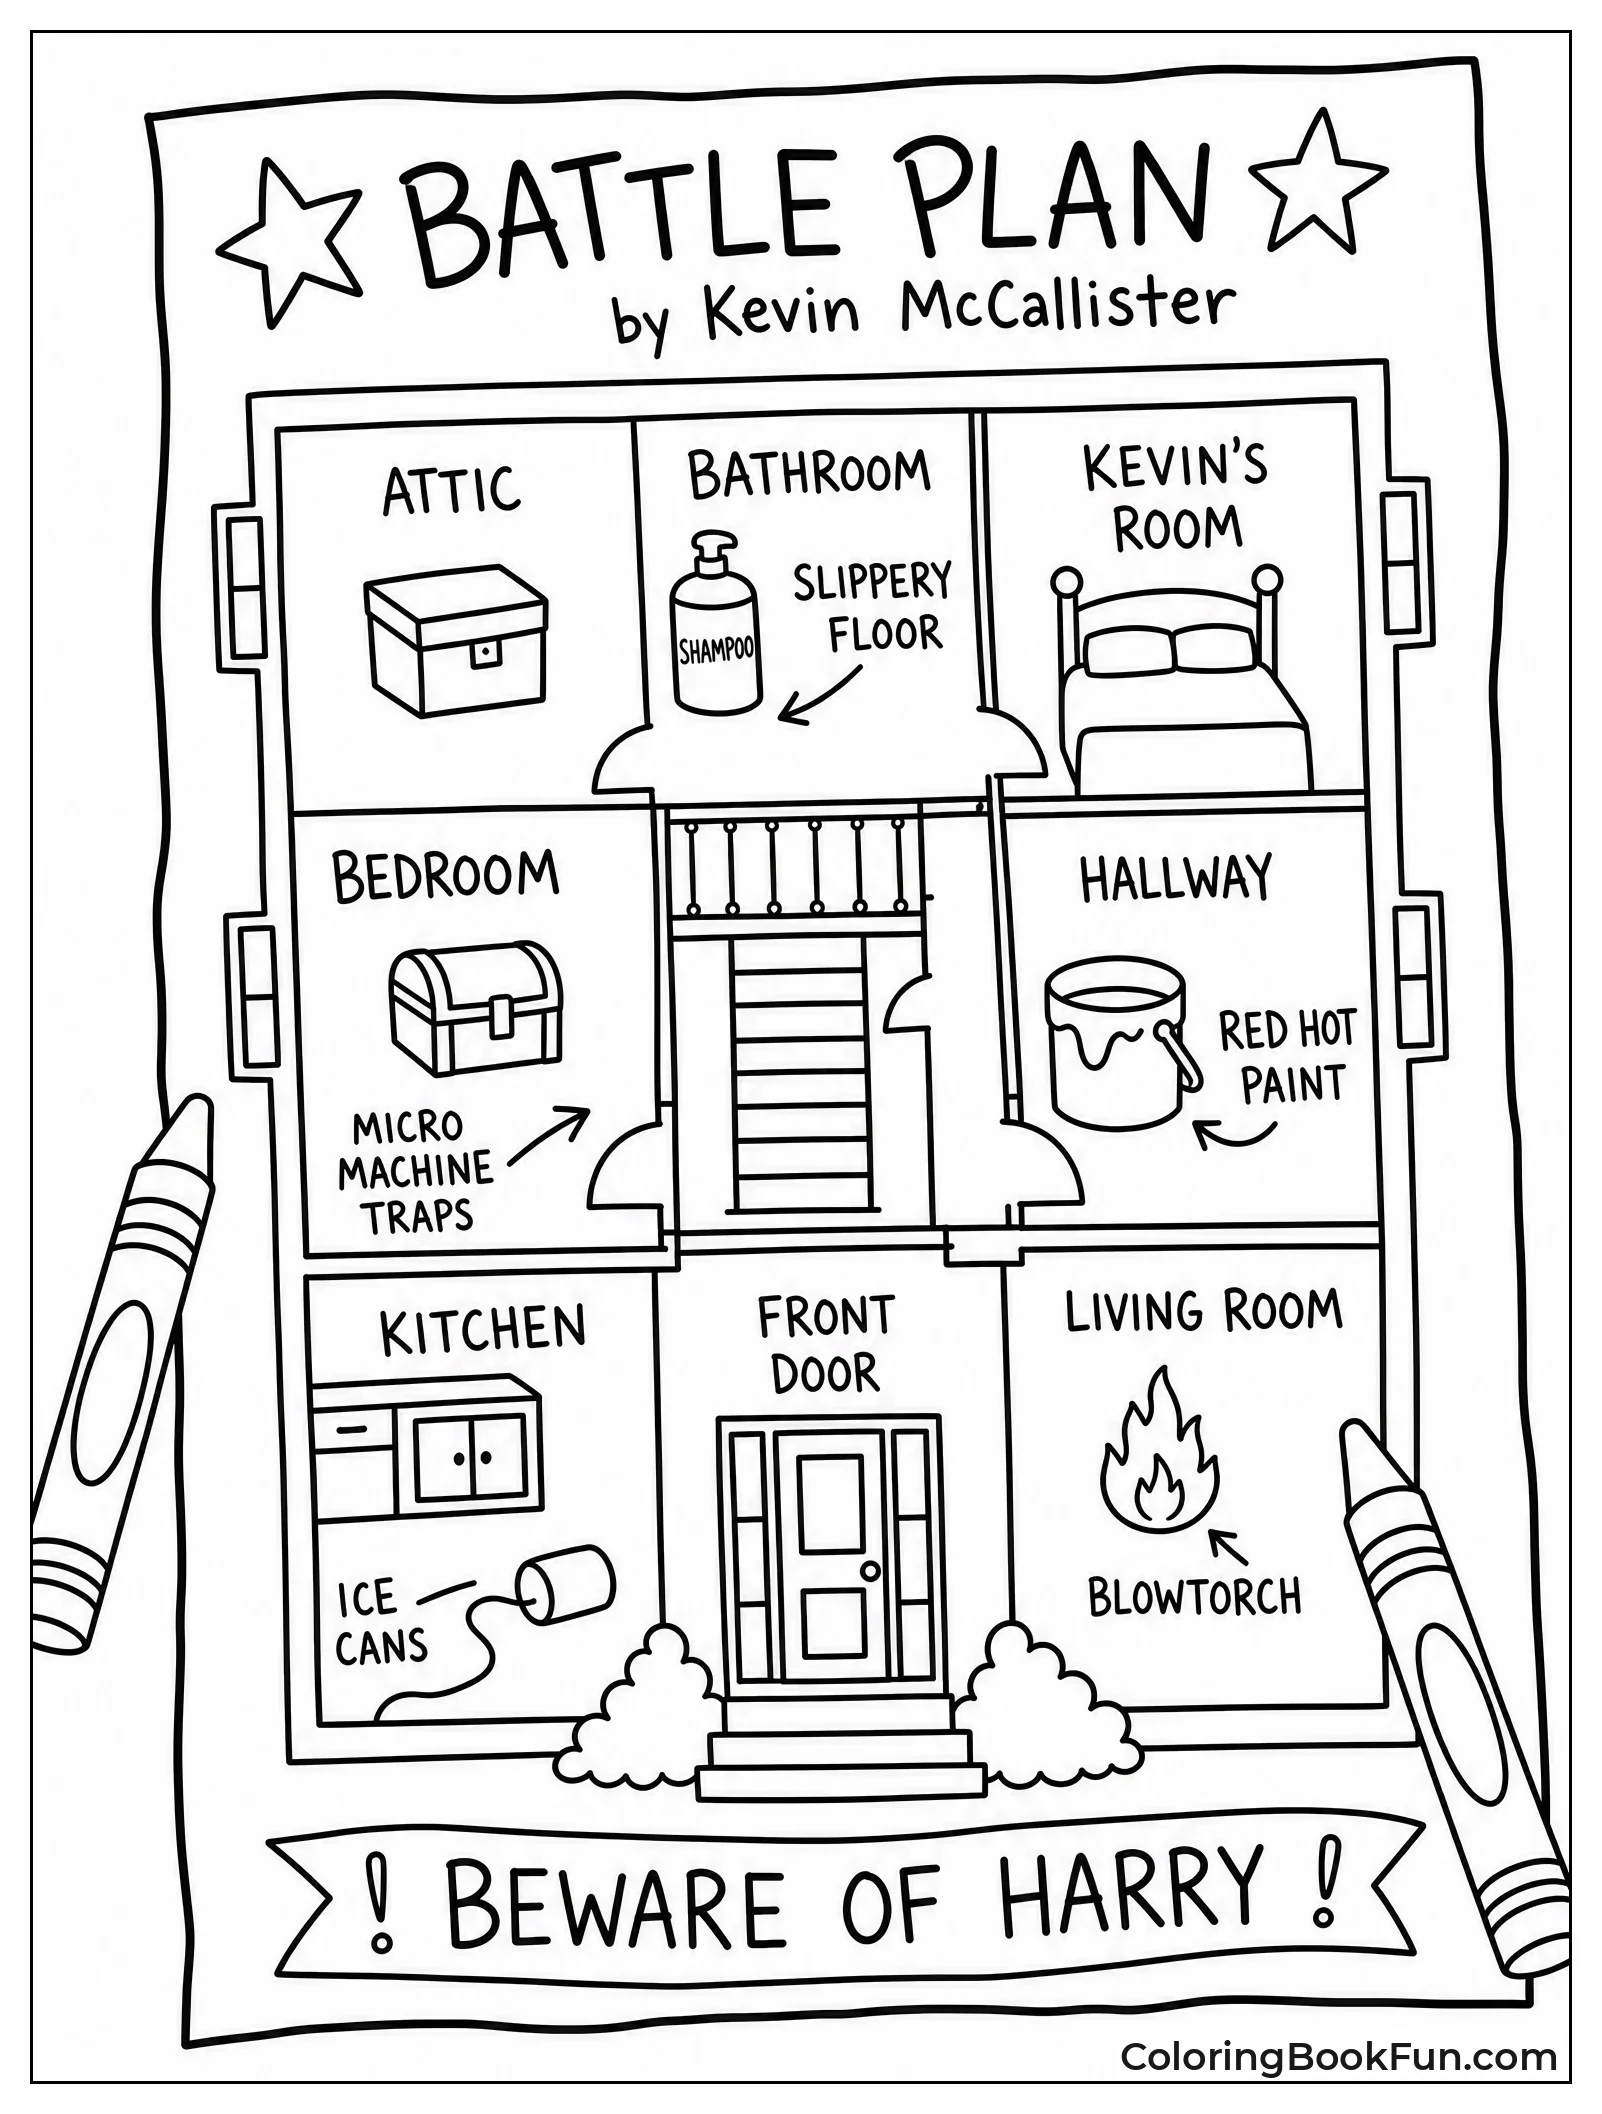 BATTLE PLAN
by Kevin McCallister
ATTIC
BATHROOM
SHAMPOO
SLIPPERY
FLOOR
KEVIN'S
ROOM
BEDROOM
MICRO
MACHINE
TRAPS
HALLWAY
RED HOT
PAINT
KITCHEN
ICE
CANS
FRONT
DOOR
LIVING ROOM
BLOWTORCH
! BEWARE OF HARRY !
ColoringBookFun.com